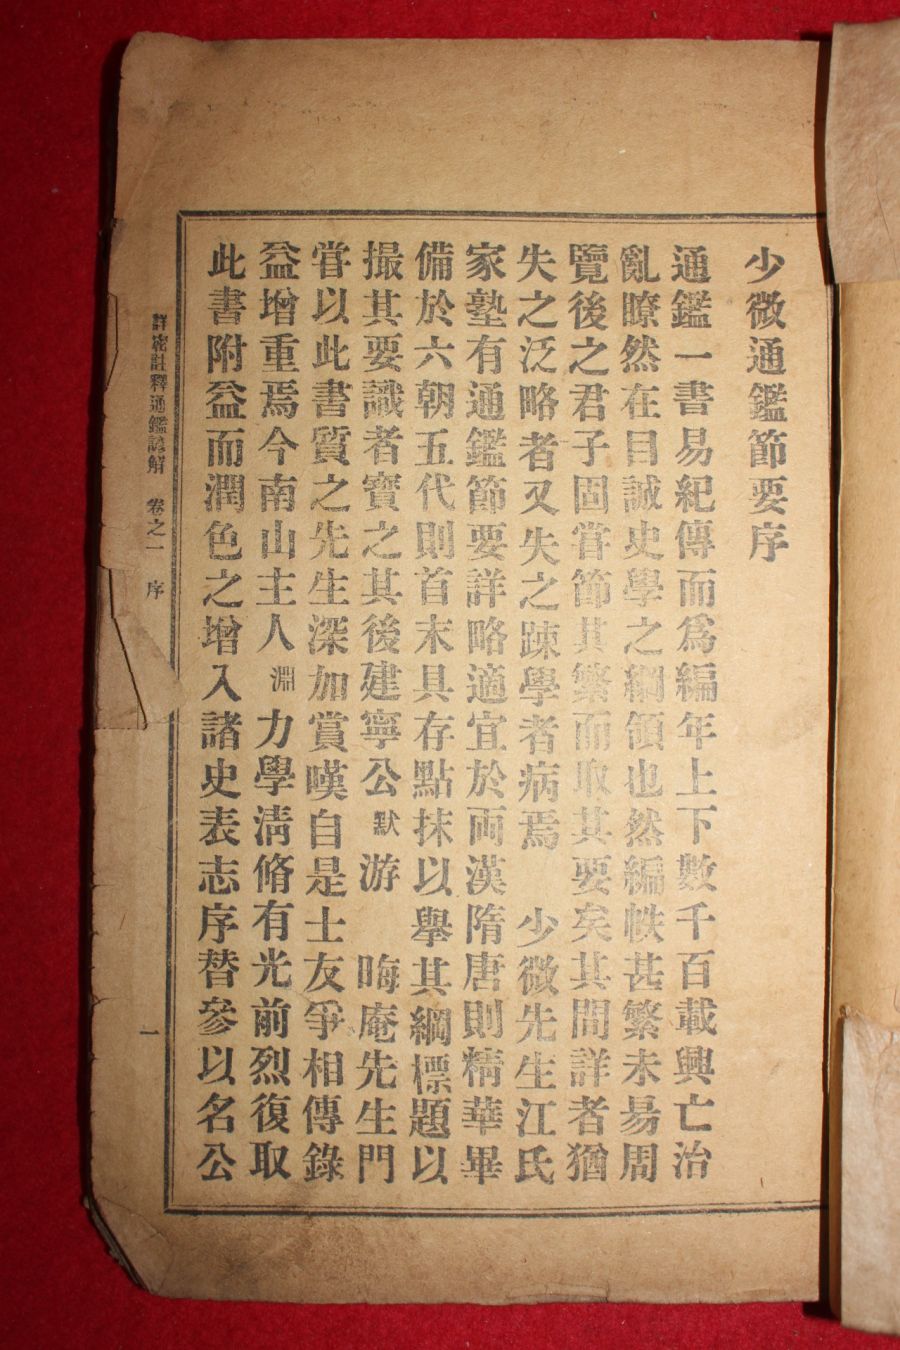 少微通鑑節要序
通鑑一書易紀傳而爲編年上下數千百載興亡治
亂瞭然在目誠史學之綱領也然編帙甚繁未易周
覽後之君子固甞節其繁而取其要矣其間詳者猶
失之泛略者又失之踈學者病焉 少微先生江氏
家塾有通鑑節要詳略適宜於兩漢隋唐則精華畢
備於六朝五代則首末具存點抹以擧其綱標題以
撮其要識者寶之其後建寧公 默 游 晦庵先生門
甞以此書質之先生深加賞嘆自是士友爭相傳錄
益增重焉今南山主人 淵 力學淸脩有光前烈復取
此書附益而潤色之增入諸史表志序替參以名公
詳密註釋通鑑諺解 卷之一 序 一